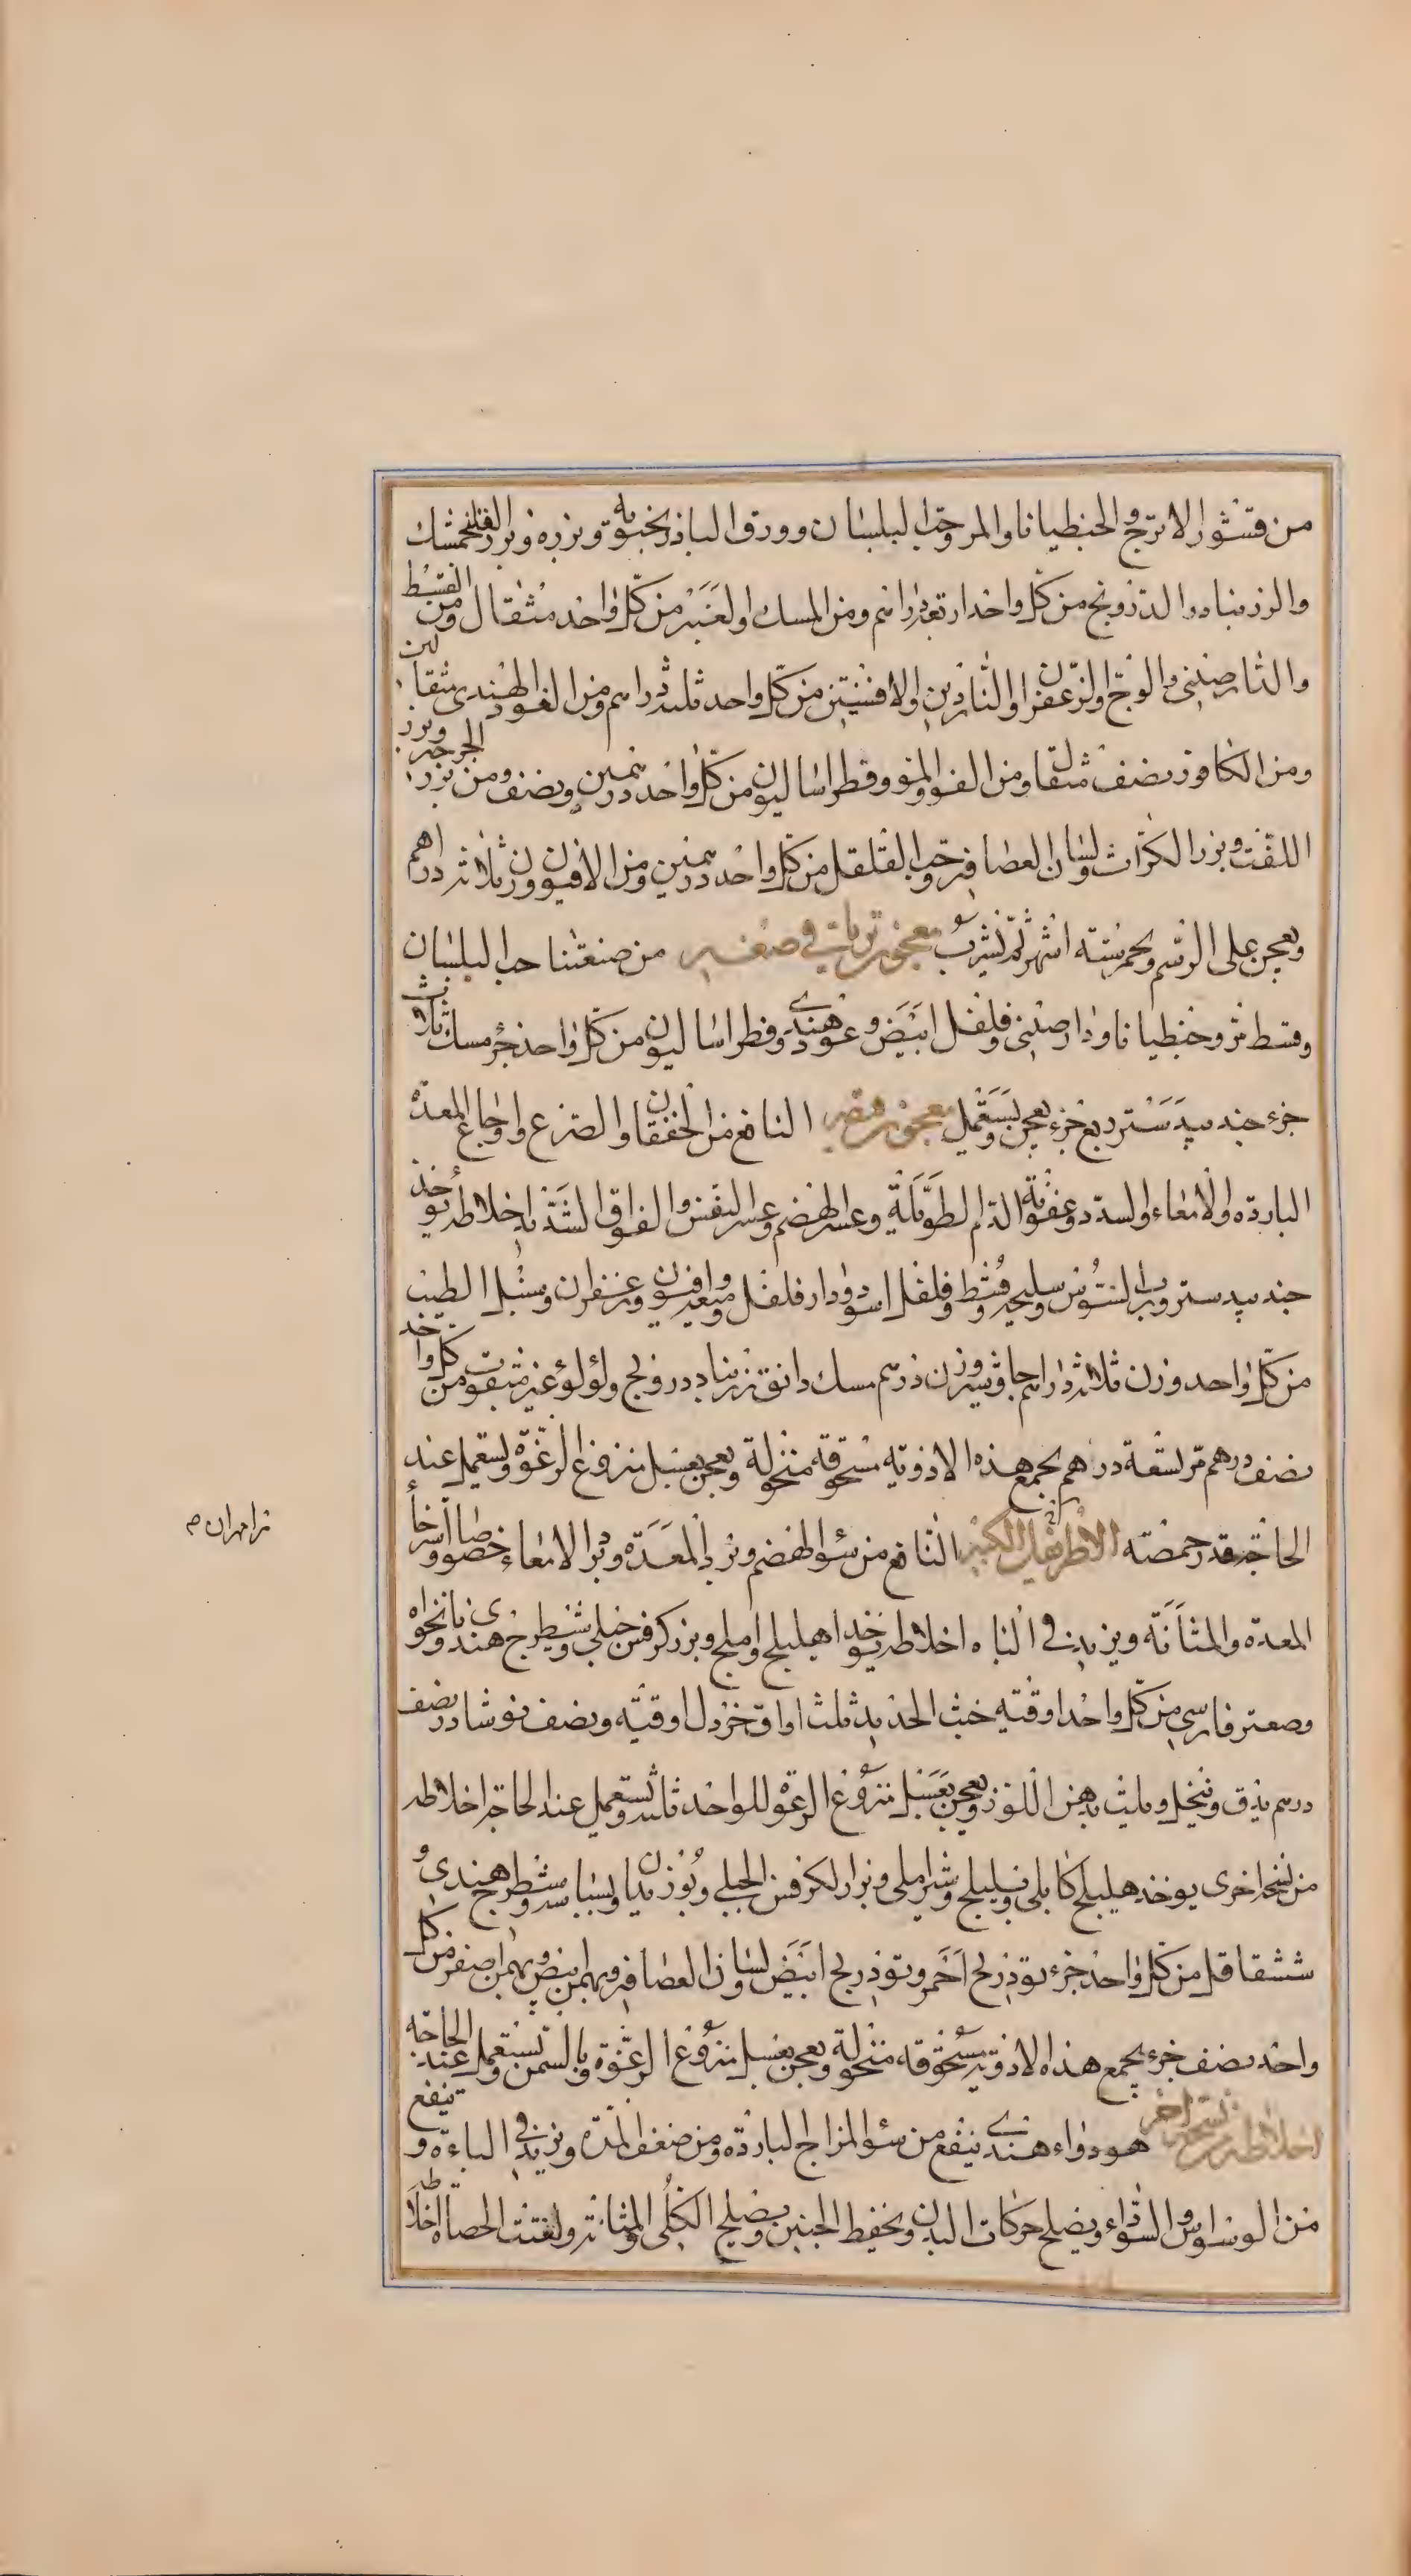 من قشور الاترج والجنطيانا والمر وحب البلسان وورق الباذرنجبويه وبزره وبزر الفلنجمشك
والزرنباد والدرونج من كل واحد اربعة دراهم ومن المسك والعنبر من كل واحد مثقال ومن القسط
والدارصيني والوج والزعفران والناردين والافسنتين من كل واحد ثلثة دراهم ومن العود الهندي مثقالين
ومن الكافور نصف مثقال ومن الفو والمو وفطراساليون من كل واحد درهمين ونصف ومن بزر الجرجير وبزر
اللفت وبزر الكراث ولسان العصافير وحب القلقل من كل واحد درهمين ومن الافيون وزن ثلاثة دراهم
ويعجن على الرسم ويخمر ستة اشهر ثم يشرب معجون ترياقي صغير من صنعتنا حب البلسان
وقسط مر وجنطيانا ودارصيني وفلفل ابيض وعود هندي وفطراساليون من كل واحد جزء مسك ثلاث
جزء جندبيدستر ربع جزء يعجن ويستعمل معجون قيصر النافع من الخفقان والصرع واوجاع المعدة
الباردة والامعاء والسدد وعفونة الدم الطويلة وعسر الهضم وعسر النفس والفواق الشديد اخلاطه يؤخذ
جندبيدستر ورب السوس وسليخه وقسط وفلفل اسود ودار فلفل وميعه وافيون وزعفران وسنبل الطيب
من كل واحد وزن ثلاثة دراهم جاوشير وزن درهم مسك دانق زرنباد درونج ولؤلؤ غير مثقوب من كل واحد
نصف درهم قر تسعة دراهم يجمع هذه الادوية مسحوقة منخولة ويعجن بعسل منزوع الرغوة ويستعمل عند
الحاجة قدر حمصة الاطريفل الكبير النافع من سؤ الهضم وبرد المعدة وبرد الامعاء خصوصا واسترخاء
المعدة والمثانة ويزيد في الباه اخلاطه يؤخذ اهليلج واملج وبزر كرفس جبلي وشيطرج هندي ونانخواه
وصعتر فارسي من كل واحد اوقيه خبث الحديد ثلث اواق خردل اوقية ونصف نوشادر نصف
درهم يدق وينخل ويلت بدهن اللوز ويعجن بعسل منزوع الرغوة للواحد ثلثه ويستعمل عند الحاجة اخلاطه
من نسخه اخرى يوخذ هليلج كابلي وبليلج وشير املج وبزر الكرفس الجبلي وبوزيدان وبسباسه وشيطرج هندي و
ششقاقل من كل واحد جزء توذريح احمر وتوذريح ابيض ولسان العصافير وبهمن ابيض وبهمن اصفر من كل
واحد نصف جزء يجمع هذه الادوية مسحوقه منخولة ويعجن بعسل منزوع الرغوة وبالسمن ويستعمل عند الحاجة
اخلاطه من نسخه اخرى هو دواء هندي ينفع من سؤ المزاج الباردة ومن ضعف المعدة ويزيد في الباءة و ينفع
من الوسواس والسوداء ويصلح حركات البدن ويحفظ الجنين ويصلح الكلى والمثانة ويفتت الحصاة اخلاطه